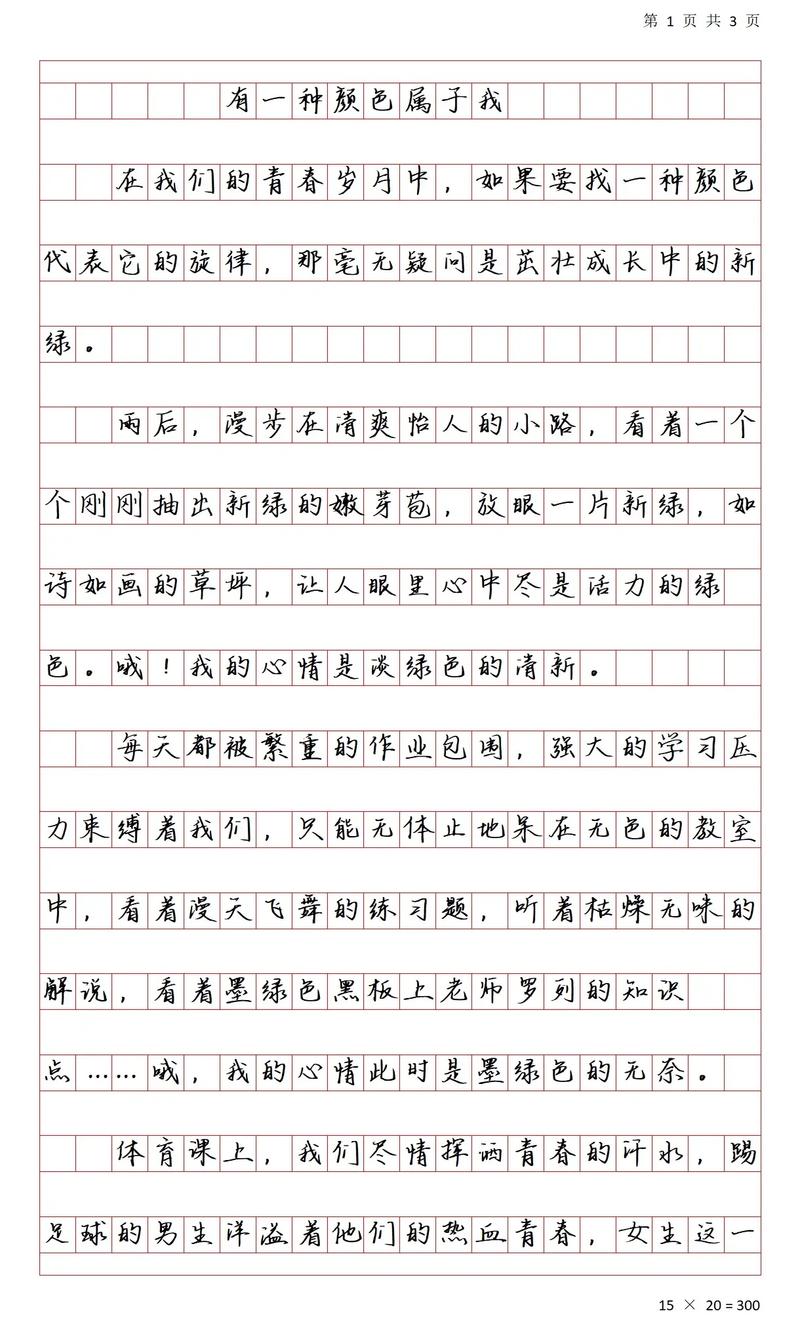 第 1 页 共 3 页
有一种颜色属于我
在我们的青春岁月中，如果要找一种颜色
代表它的旋律，那毫无疑问是茁壮成长中的新
绿。
雨后，漫步在清爽怡人的小路，看着一个
个刚刚抽出新绿的嫩芽苞，放眼一片新绿，如
诗如画的草坪，让人眼里心中尽是活力的绿
色。哦！我的心情是淡绿色的清新。
每天都被繁重的作业包围，强大的学习压
力束缚着我们，只能无休止地呆在无色的教室
中，看着漫天飞舞的练习题，听着枯燥无味的
解说，看着墨绿色黑板上老师罗列的知识
点……哦，我的心情此时是墨绿色的无奈。
体育课上，我们尽情挥洒青春的汗水，踢
足球的男生洋溢着他们的热血青春，女生这一
15 × 20 = 300